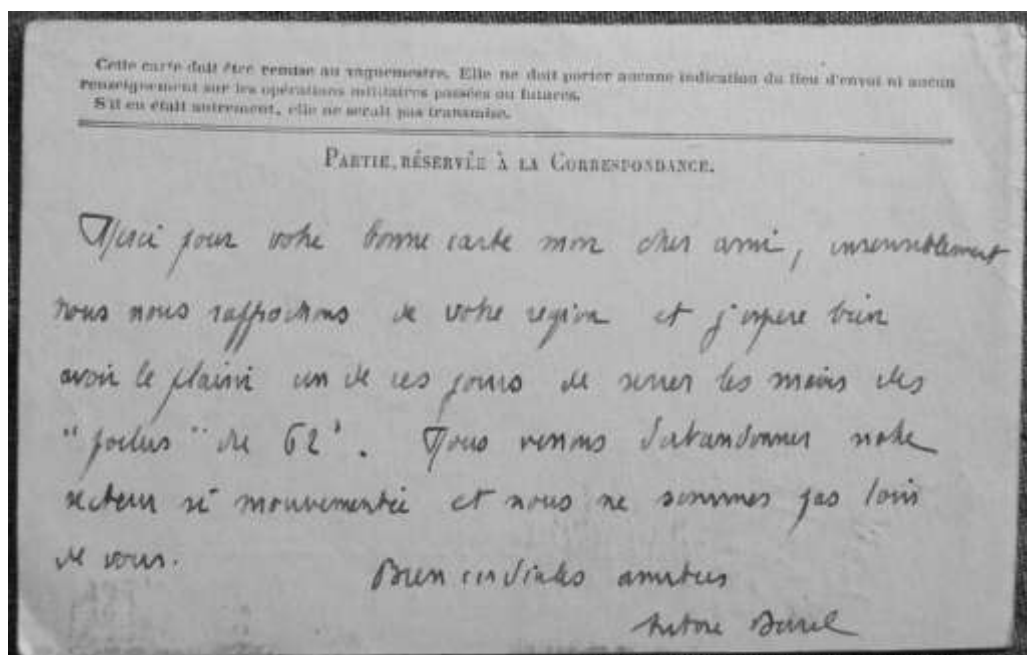 Cette carte doit être remise au vaguemestre. Elle ne doit porter aucune indication du lieu d'envoi ni aucun
renseignement sur les opérations militaires passées ou futures.
S'il en était autrement, elle ne serait pas transmise.
PARTIE RÉSERVÉE À LA CORRESPONDANCE.
Merci pour votre bonne carte mon cher ami, insensiblement
nous nous rapprochons de votre region et j'espere bien
avoir le plaisir un de ces jours de serrer les mains des
"poilus" du 62e. Nous venons d'abandonner notre
secteur si mouvementée et nous ne sommes pas loin
de vous.
Bien cordiales amitiées